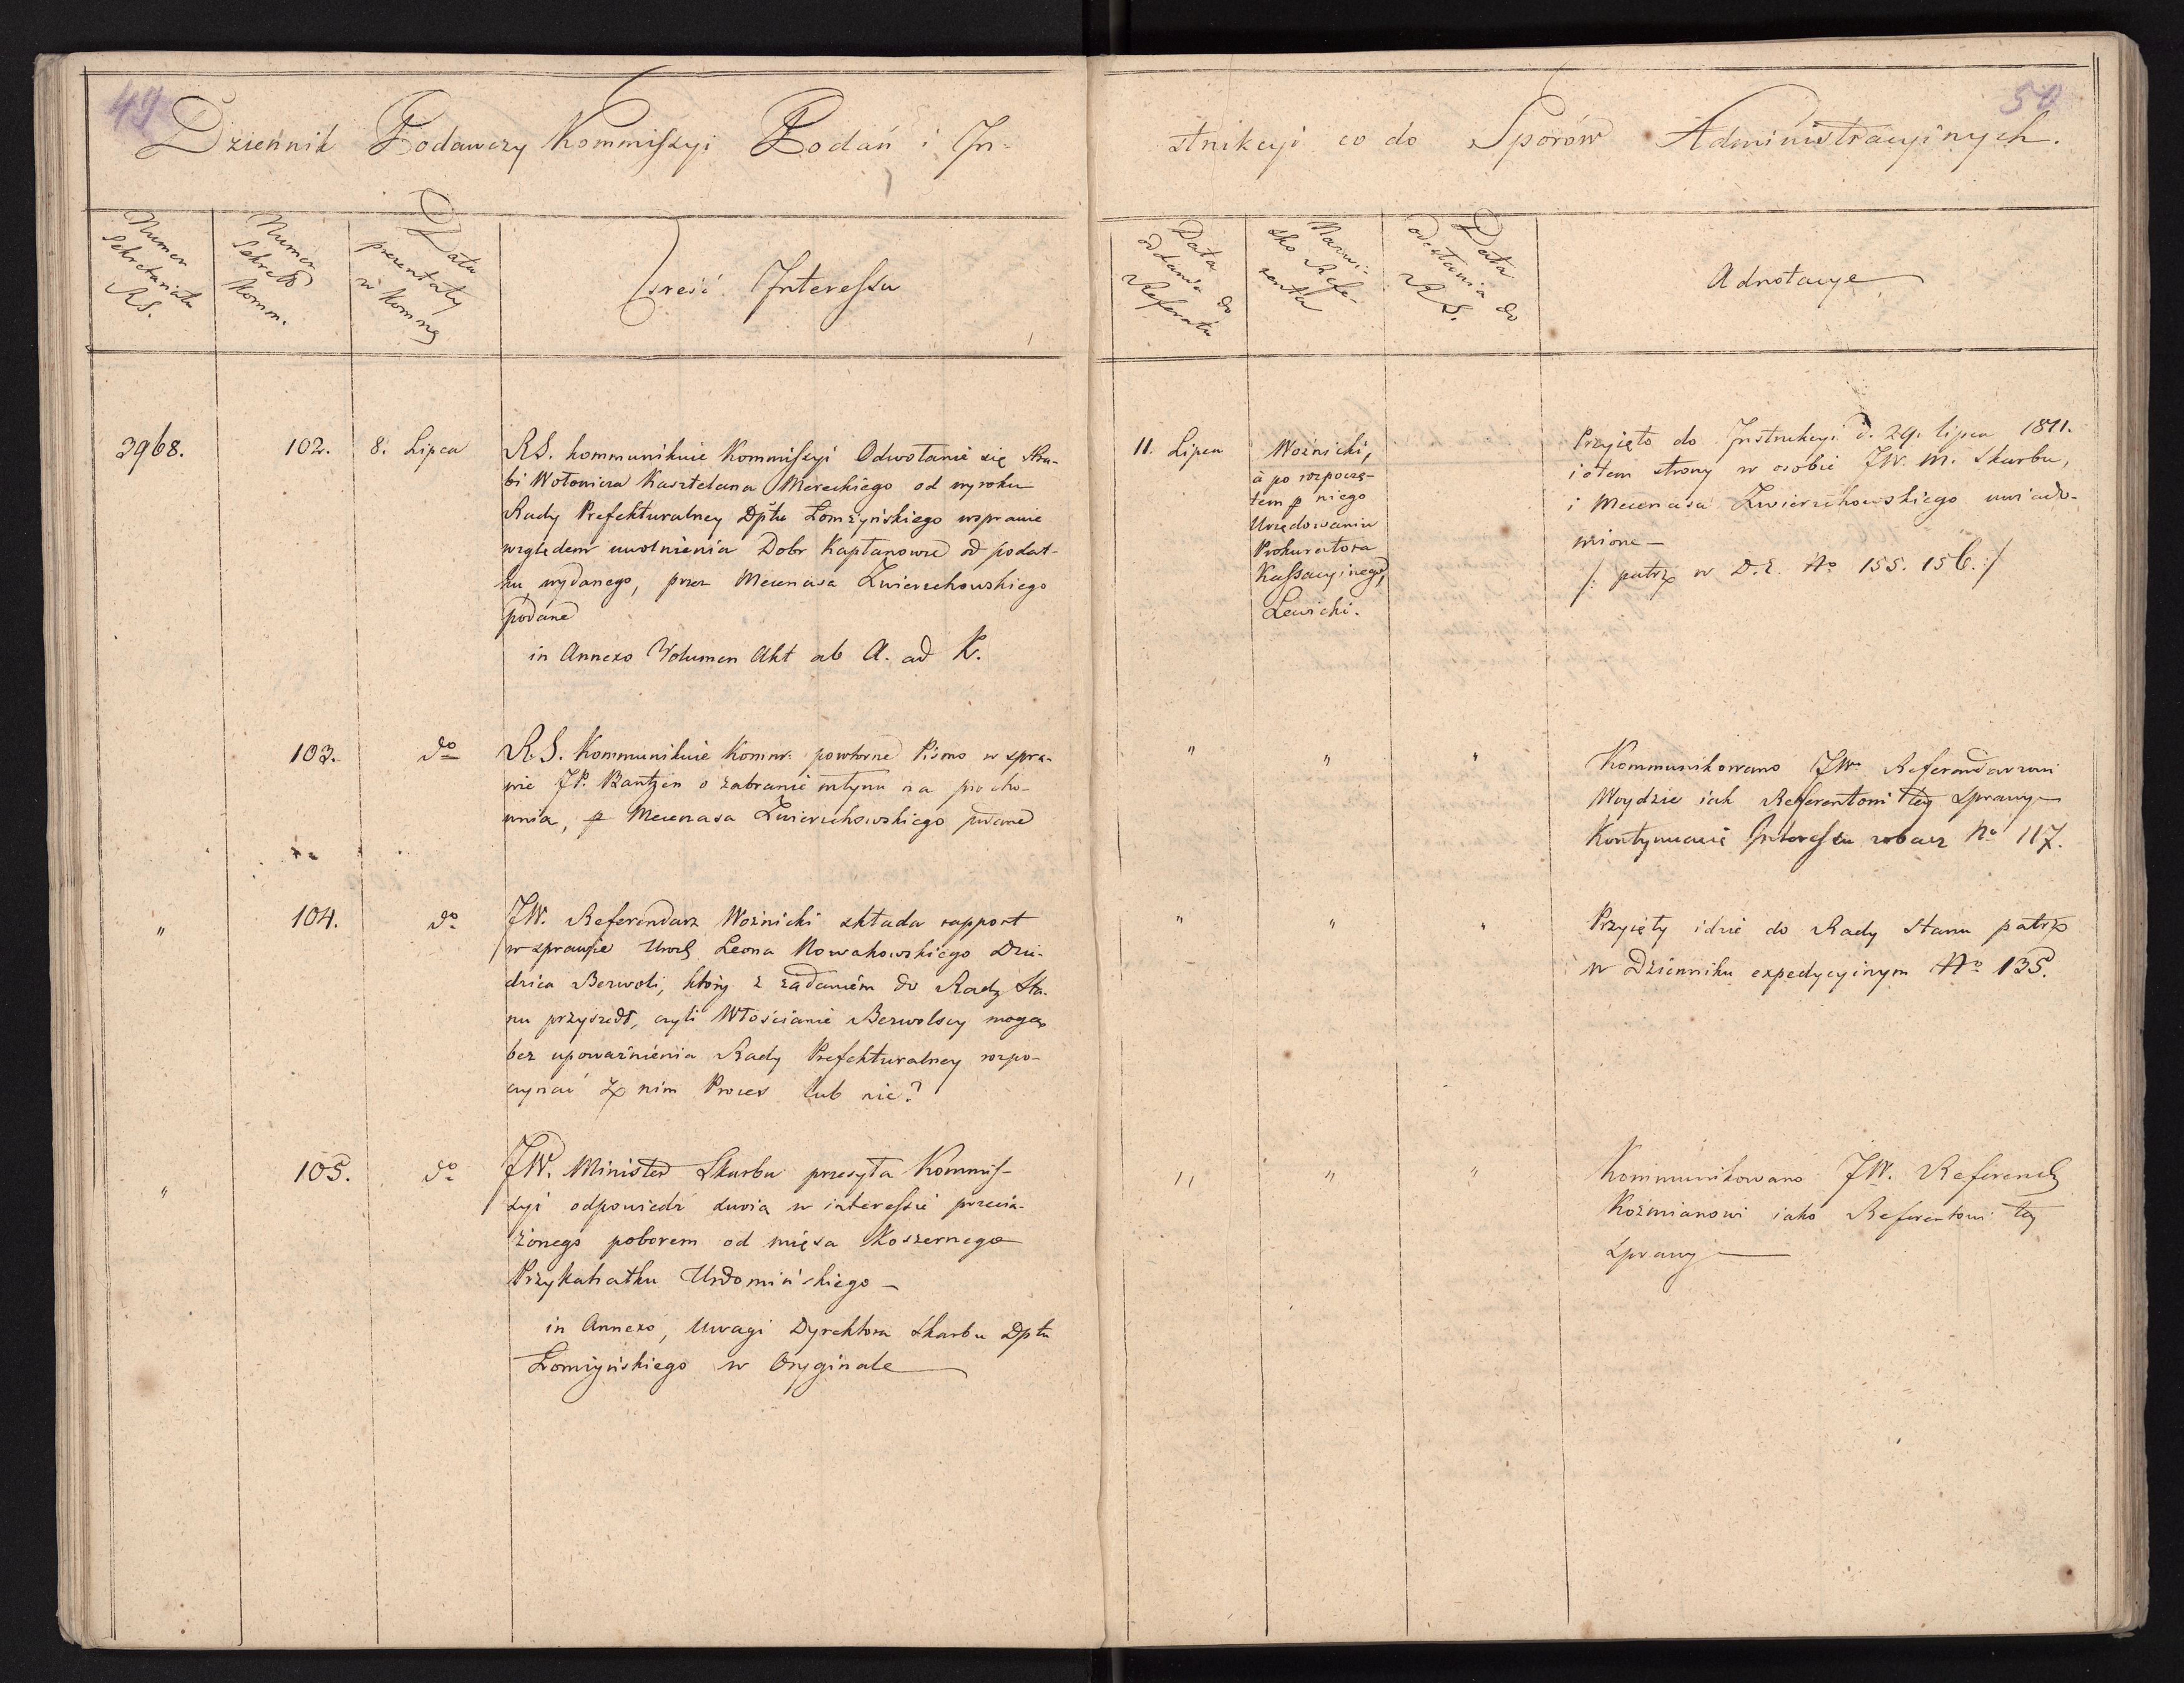 49
50
Dziennik Podawczy Kommissyi Podań i In-
strukcyi co do Sporów Administracyinych.
Numer Sekretariatu RS.
Numer Sekret. Komm.
Data prezentaty w Kommę
Treść Interessu
Data oddania do Referatu
Nazwi-
sko Refe-
renta
Data odesłania do RS.
Adnotacye
3968.
102.
8. Lipca
RS. kommunikuie Kommissyi Odwołanie się Hra-
bi Wołowicza Kasztelana Mereckiego od wyroku
Rady Prefekturalney Dptu Łomżyńskiego wsprawie
względem uwolnienia Dobr Kaptanowce od podat-
ku wydanego, przez Mecenasa Zwierzchowskiego
podane
in Annexo Volumen Akt ab A. ad K.
11. Lipca
Woźnicki,
à po rozpoczę-
tem p niego
Urzędowaniu
Prokuratora
Kassacyinego,
Lewicki.
Przyięto do Instrukcyi d. 29. lipca 1811.
i o tem strony w osobie JW. M. Skarbu,
i Mecenasa Zwierzchowskiego uwiado-
mione —
/: patrz w D.E. No 155. 156. :/
103.
do
RS. Kommunikuie Komm. powtorne Pismo w spra-
wie JP. Bantzen o zabranie młyna na procho-
wnia, p Mecenasa Zwierzchowskiego podane
" " "
Kommunikowano JW. Referendarzowi
Woydzie iak Referentowi tey Sprawy —
Kontynuacię Interessu zobacz No 117.
"
104.
do
JW. Referendarz Woźnicki składa rapport
w sprawie Urod. Leona Nowakowskiego Dzie-
dzica Berwoli, który z żądaniem do Rady Sta-
nu przyszedł, czyli Włościanie Berwolscy mogą
bez upoważnienia Rady Prefekturalney rozpo-
czynać z nim Proces lub nie?
" " "
Przyięty idzie do Rady Stanu patrz
w Dzienniku expedycyinym No 135.
"
105.
do
JW. Minister Skarbu przesyła Kommis-
syi odpowiedź swoią w interessie przecią-
żonego poborem od mięsa Koszernego
Przykahałku Urdomińskiego —
in Annexo, Uwagi Dyrektora Skarbu Dptu
Łomżyńskiego w Oryginale —
" " "
Kommunikowano JW. Referend.
Koźmianowi iako Referentowi tey
Sprawy —